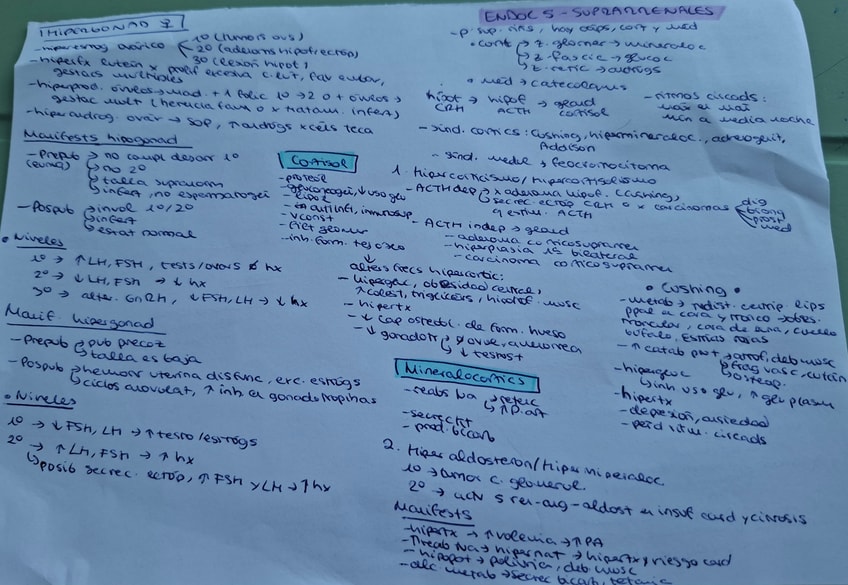 HIPERGONAD ♀
- hiperestrog ovárico
1º (tumors ovs)
2º (adenoms hipof/ectóp)
3º (lesión hipot)
gestacs multiples
gestac mult (herencia fam o x tratam. infert)
- hiperandrog. ovar → SOP, ↑ andrógs x céls teca
Manifests hipogonad
- Prepub → no compl desarr 1º
↳ no 2º
↳ talla supranorm
↳ infert, no espermatogén
- Pospub → invol 1º/2º
↳ infert
↳ estat normal
• Niveles
1º → ↑ LH, FSH, tests/ovars ∅ hx
2º → ↓ LH, FSH → ↓ hx
3º → alter. GnRH, ↓ FSH, LH → ↓ hx
Manif. hipergonad
- Prepub → pub precoz
↳ talla es baja
- Pospub → hemorr uterina disfunc, exc. estrógs
↳ ciclos anovulat, ↑ inh en gonadotropinas
• Niveles
1º → ↓ FSH, LH → ↑ testo/estrógs
2º → ↑ LH, FSH → ↑ hx
↳ posib secrec. ectóp, ↑ FSH y LH → ↑ hx
ENDOC 5 - SUPRARRENALES
- p. sup. riñs, hay cáps, cort y méd
• cort → z. glomer → mineraloc
↳ z. fascic → glucoc
↳ z. retic → andrógs
• méd → catecolamns
hipot → hipof → gland
CRH ACTH cortisol
- ritmos circads:
mín a media noche
- sínd. cortics: Cushing, hipermineraloc., adrenogenit,
Addison
- sínd. medul → feocromocitoma
Cortisol
- proteól
- gluconeogén, ↓ uso glu
- lipól
- antiinfl, inmunosup
- vconst
- filt glomer
- inh. form. tej óseo
1. Hipercorticismo/hipercortisolismo
- ACTH dep → x adenoma hipof. (Cushing),
↳ secrec. ectóp CRH o x carcinomas
q estim. ACTH
dig
bronq
prost
med
- ACTH indep → gland
- adenoma corticosuprarr
- hiperplasia 1ª bilateral
- carcinoma corticosuprarr
alters frecs hipercortic:
- hipergluc, obesidad central,
↑ colest, triglicérs, hipotrof. musc
- hipertx
- ↓ cap osteobl. de form. hueso
- ↓ gonadotr → ∅ ovul, amenorrea
↳ ↓ testost
• Cushing •
- metab → redist. centríp. líps
ppal a cara y tronco → obes.
troncular, cara de luna, cuello
búfalo, estrías rojas
- ↑ catab prot → atrof, deb musc
↳ frag vasc, cután
↳ osteop.
- hipergluc
↳ inh uso glu, ↑ glu plasm
- hipertx
- depresión, ansiedad
- pérd ritm. circads
Mineralocortics
- reabs Na → retenc
↳ ↑ P. art
- secrec K+
- prod. bicarb
2. Hiper aldosteron/Hiper mineraloc
1º → tumor c. glomerul.
2º → actv s ren-ang-aldost en insuf card y cirrosis
Manifests
- hipertx → ↑ volemia → ↑ PA
- ↑ reab Na → hipernat → hipertx y riesgo card
- hipopot → poliuria, deb musc
- alc metab → secrec bicarb, tetania